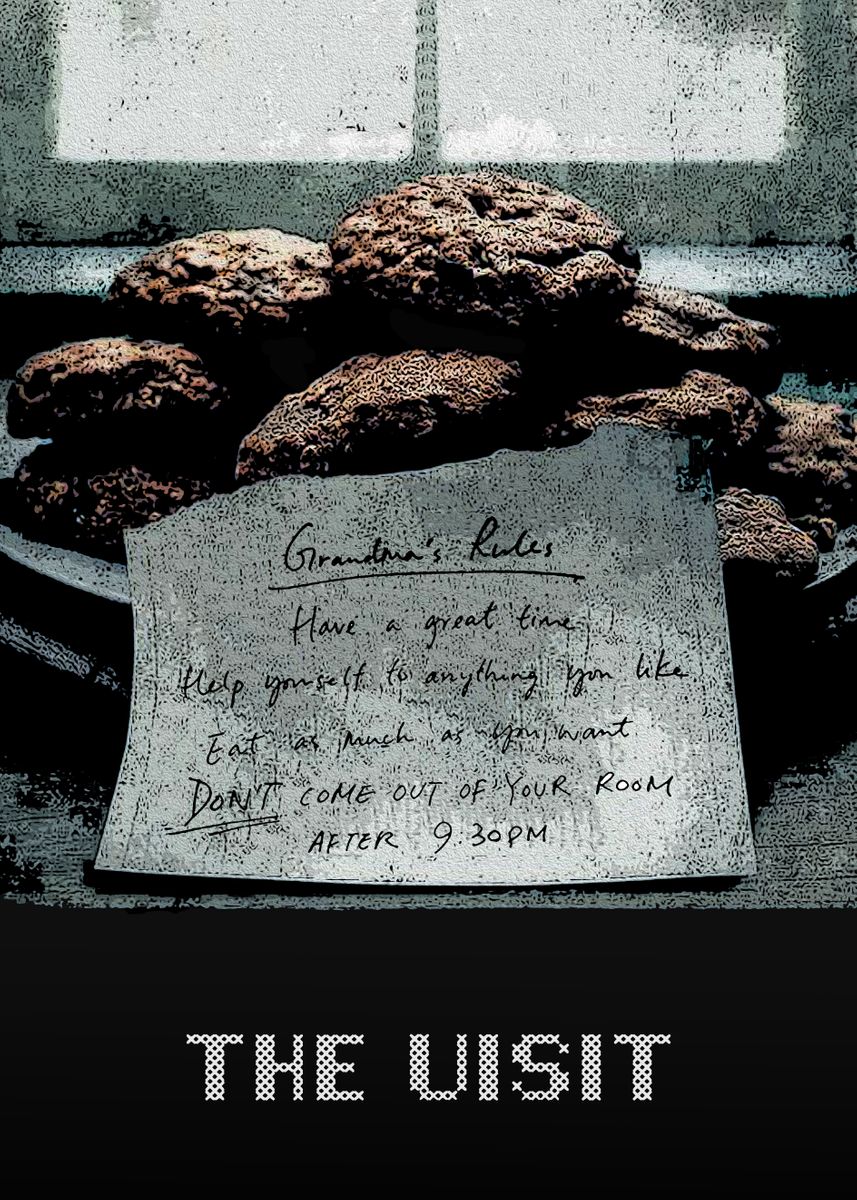 Grandma's Rules
Have a great time
Help yourself to anything you like
Eat as much as you want
DON'T COME OUT OF YOUR ROOM
AFTER 9.30PM
THE VISIT